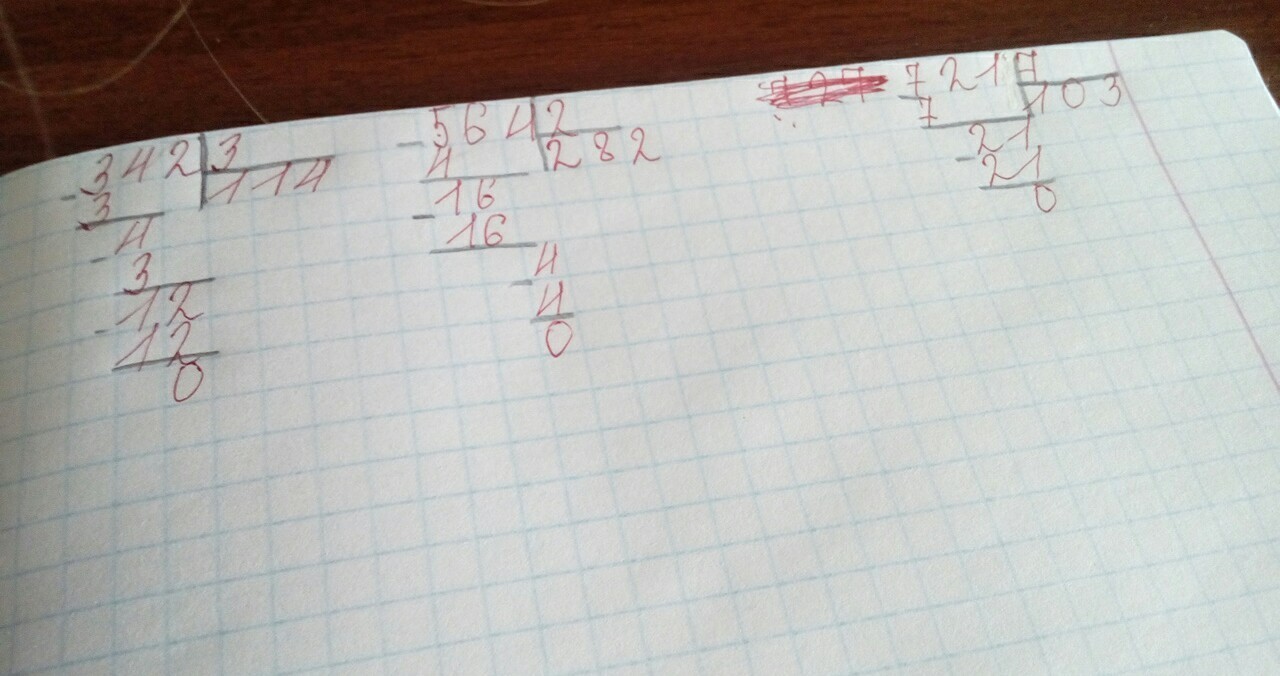 342 3
3 114
4
3
12
12
0
564 2
4 282
16
16
4
4
0
721 7
7 103
21
21
0